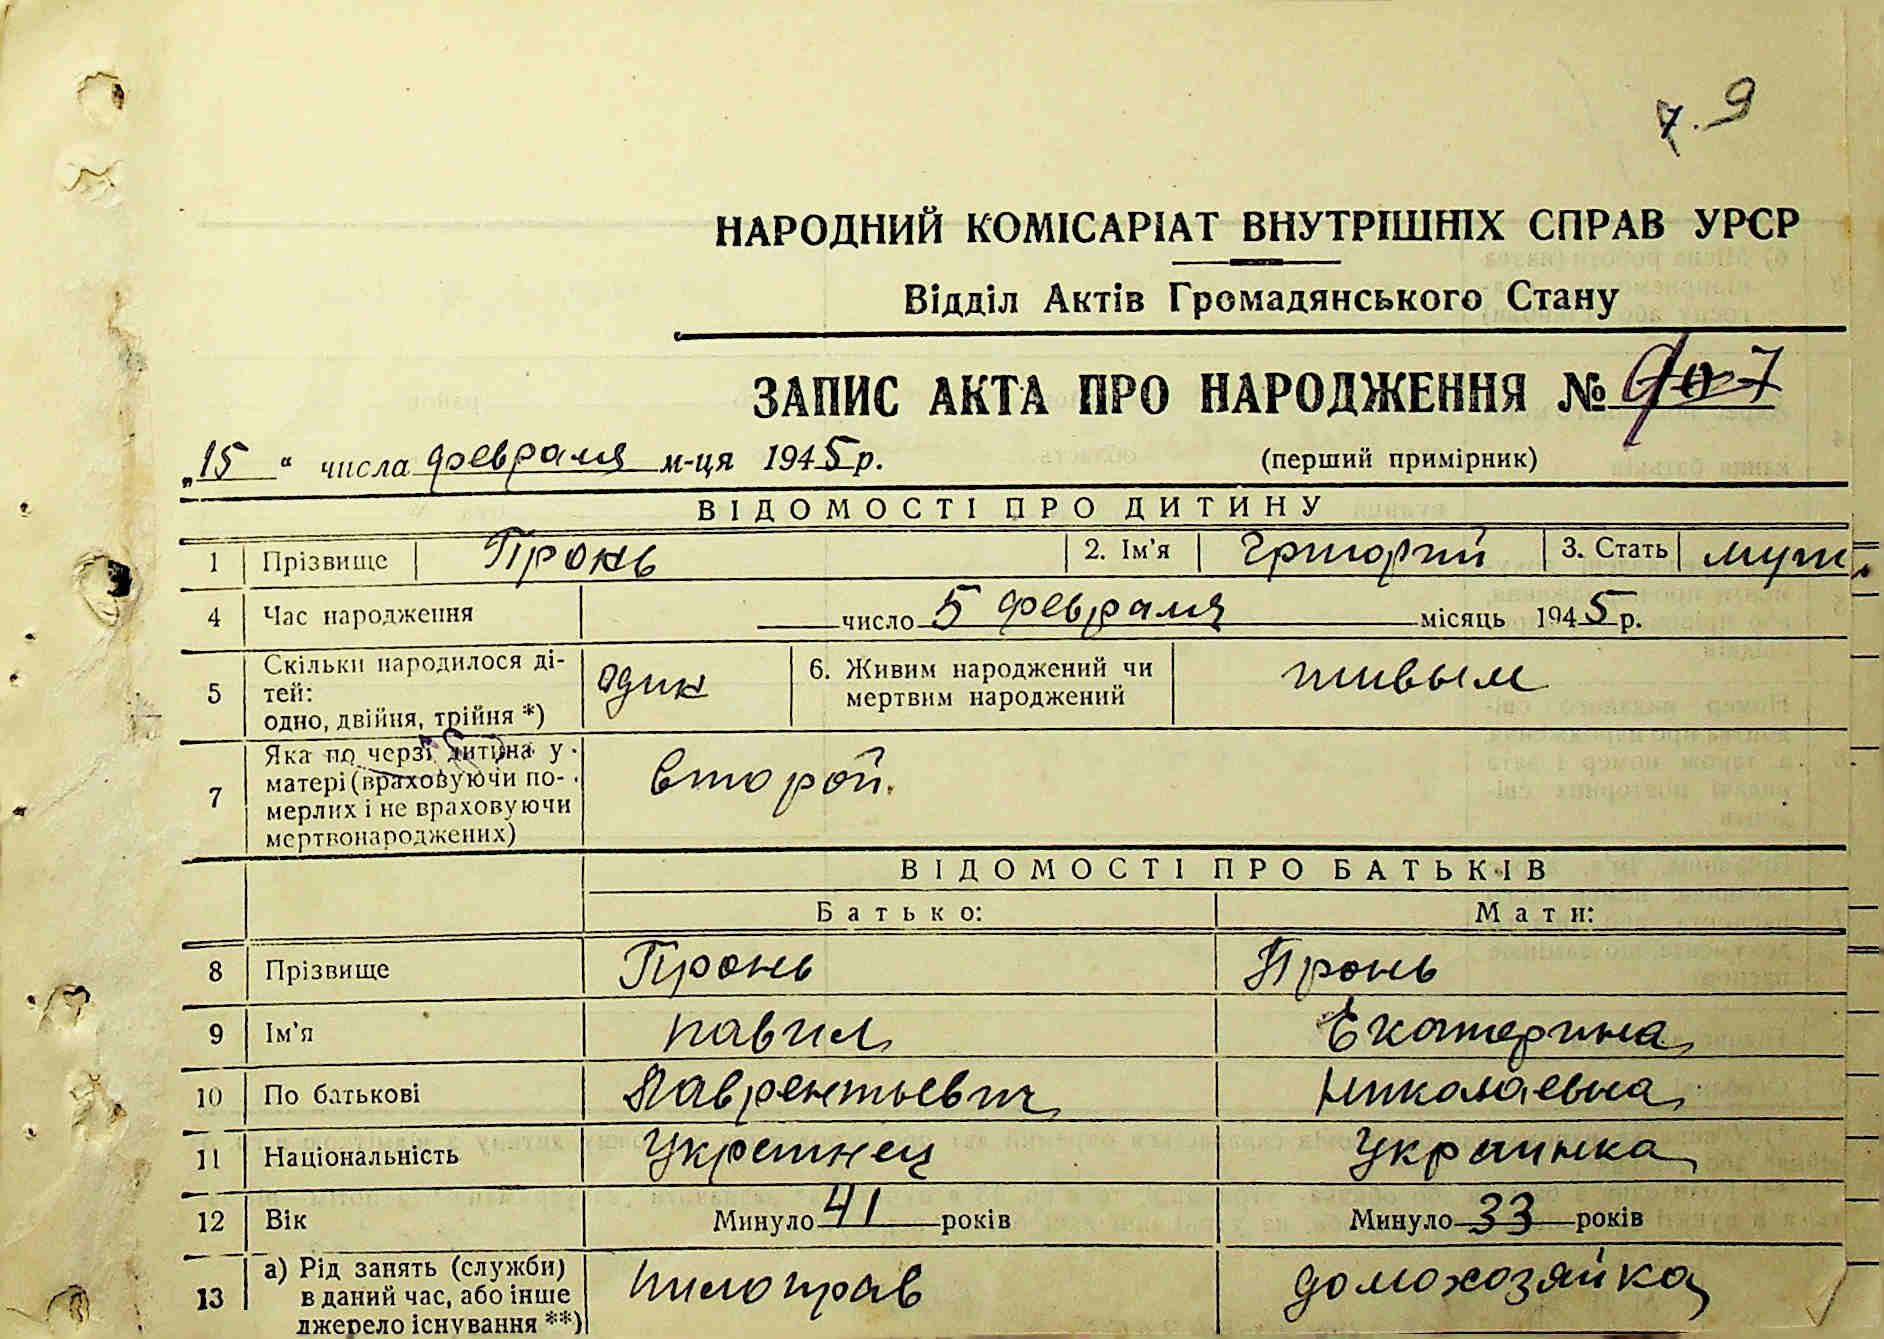 7. 9
НАРОДНИЙ КОМІСАРІАТ ВНУТРІШНІХ СПРАВ УРСР
Відділ Актів Громадянського Стану
ЗАПИС АКТА ПРО НАРОДЖЕННЯ № 7
„15“ числа февраля м-ця 1945 р. (перший примірник)
ВІДОМОСТІ ПРО ДИТИНУ
1 Прізвище Пронь 2. Ім'я Григорий 3. Стать муж.
4 Час народження число 5 февраля місяць 1945 р.
5 Скільки народилося ді-
тей:
одно, двійня, трійня *) один 6. Живим народжений чи
мертвим народжений живым
7 Яка по черзі дитина у
матері (враховуючи по-
мерлих і не враховуючи
мертвонароджених) второй.
ВІДОМОСТІ ПРО БАТЬКІВ
Батько: Мати:
8 Прізвище Пронь Пронь
9 Ім'я павил Екатерина
10 По батькові Лаврентьевич Николаевна
11 Національність Украинец Украинка
12 Вік Минуло 41 років Минуло 33 років
13 а) Рід занять (служби)
в даний час, або інше
джерело існування **) пилоправ домохозяйка